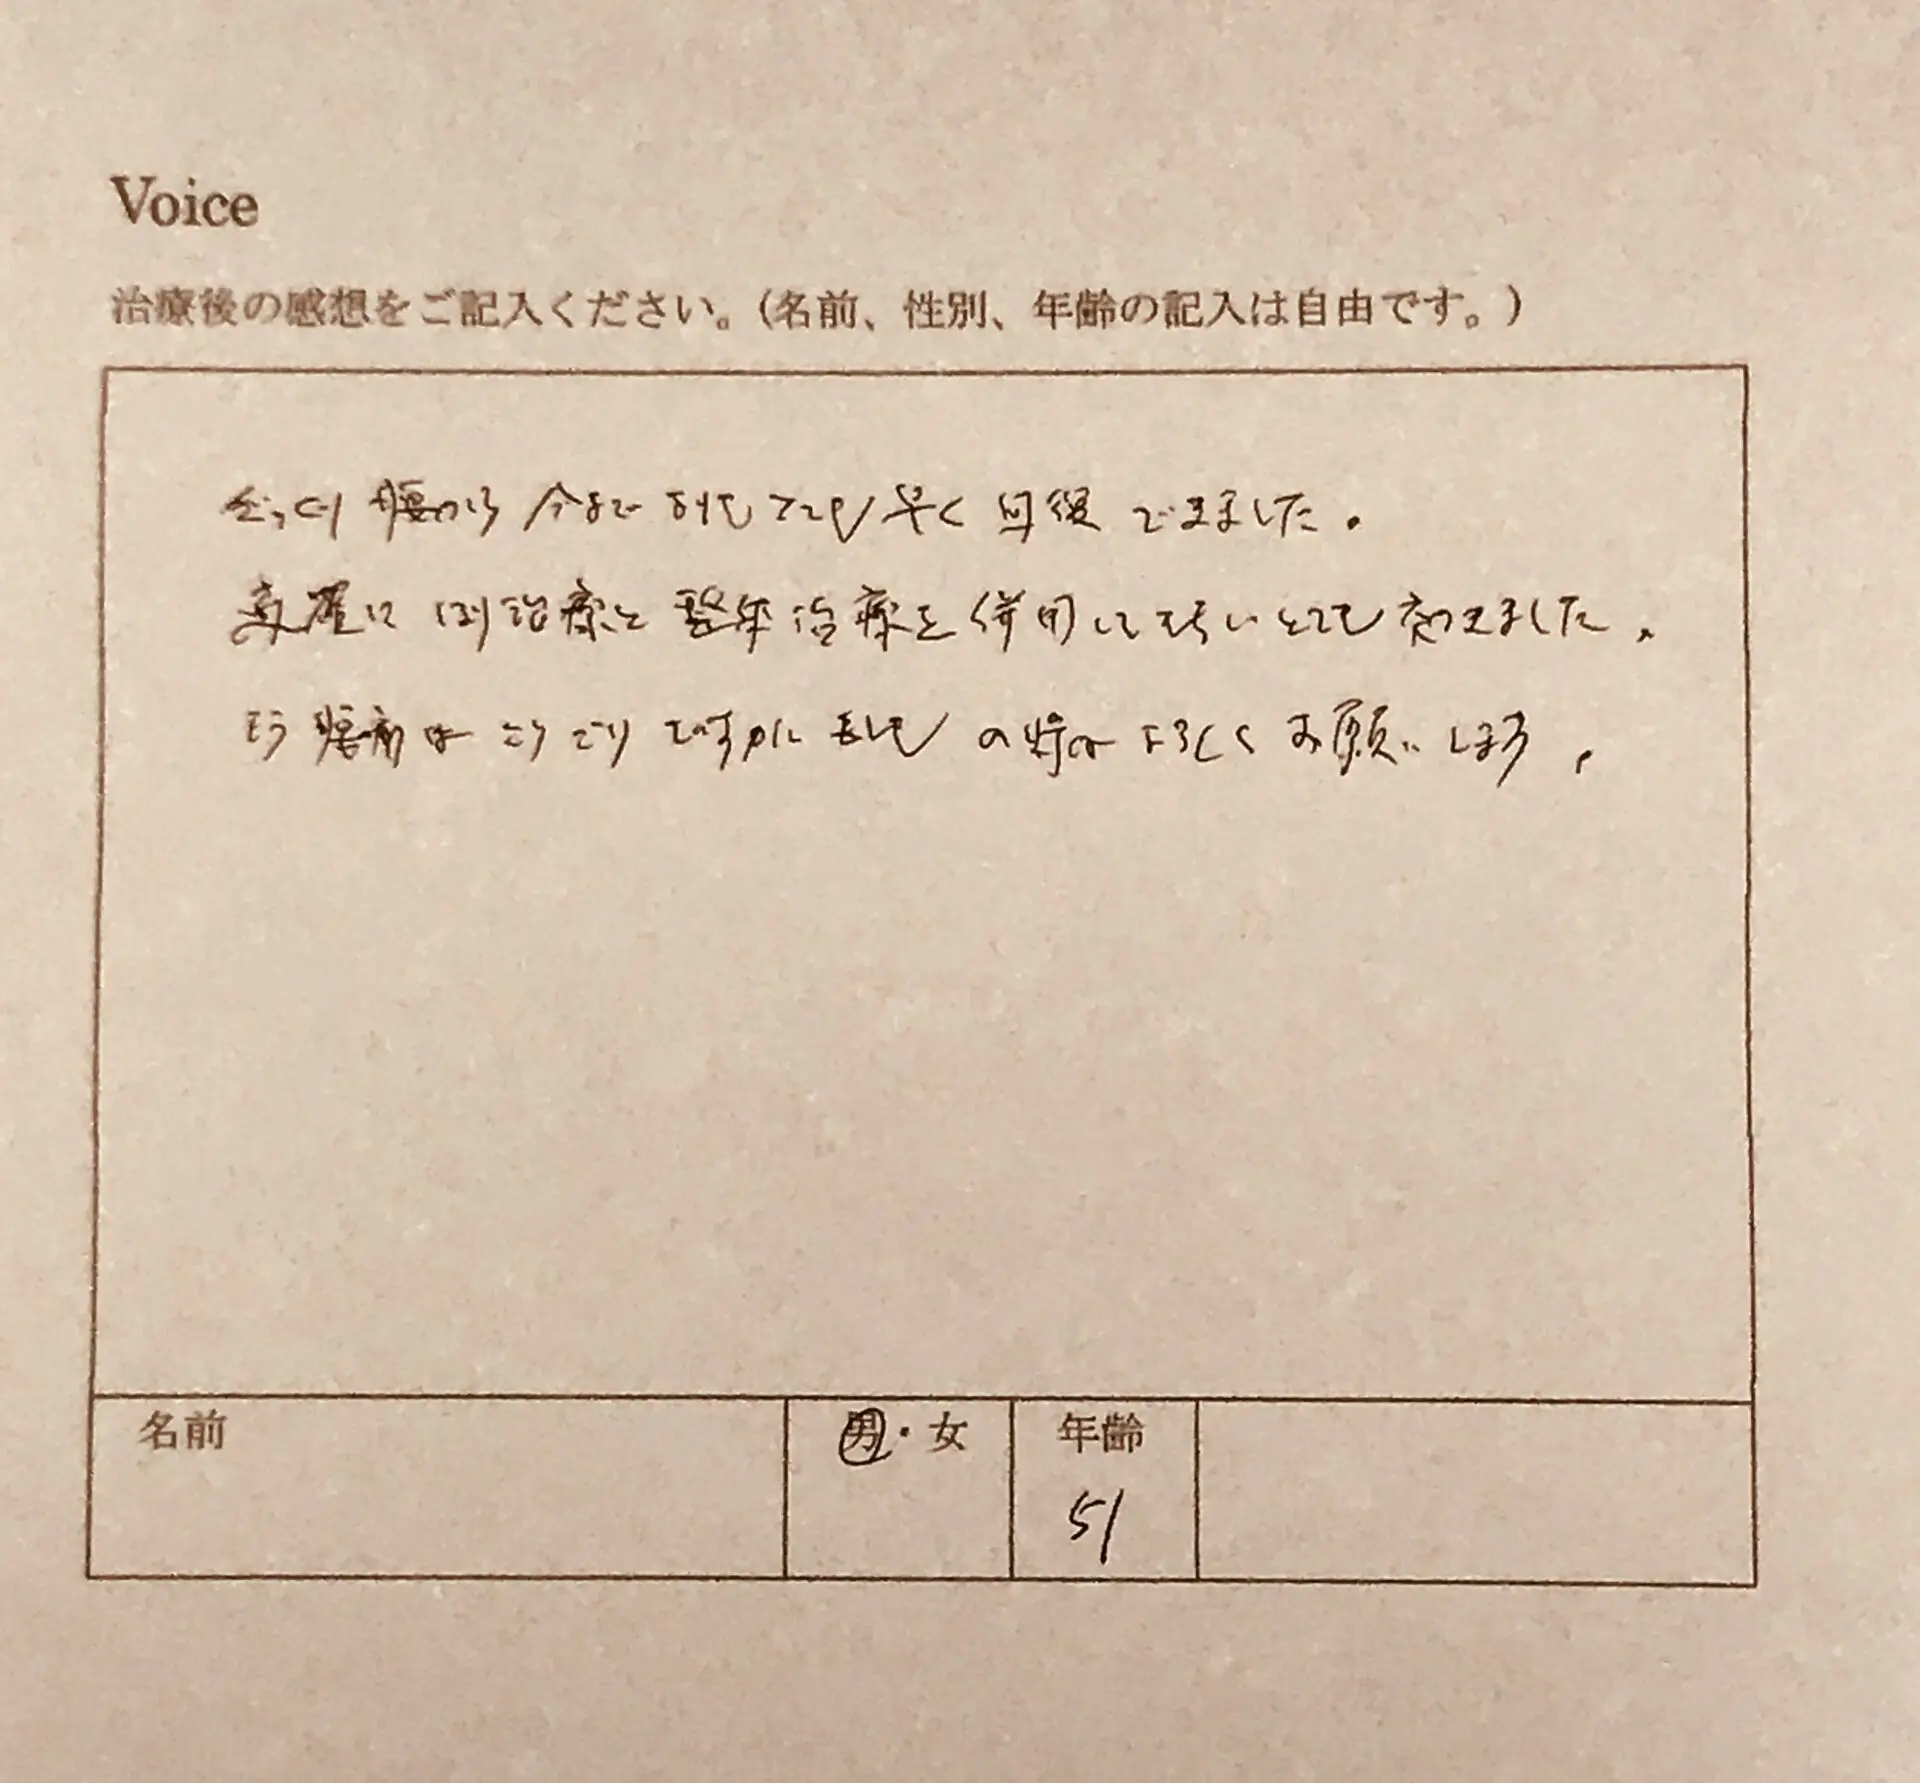 Voice
治療後の感想をご記入ください。(名前、性別、年齢の記入は自由です。)
ぎっくり腰から今までよりもとても早く回復できました。
はり治療と整体治療を併用してもらいとても効きました。
もう腰痛はこりごりですがもしもの時はよろしくお願いします。
名前
男・女
年齢
51